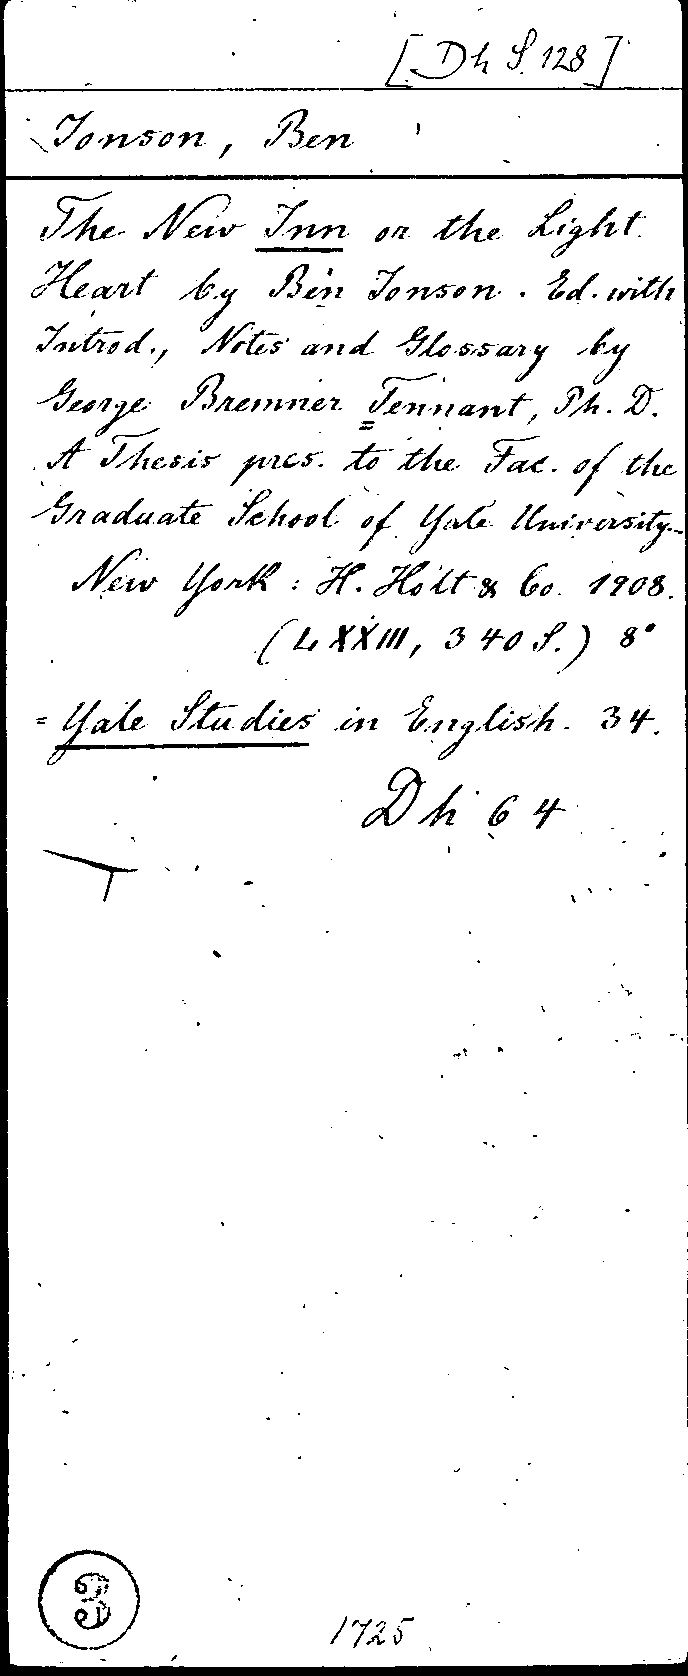 [Dh S. 128]
Jonson, Ben
The New Inn or the Light
Heart by Ben Jonson. Ed. with
Introd., Notes and Glossary by
George Bremner Tennant, Ph. D.
A Thesis pres. to the Fac. of the
Graduate School of Yale University.
New York: H. Holt & Co. 1908.
(LXXIII, 340 S.) 8°
= Yale Studies in English. 34.
Dh 64
3
1725